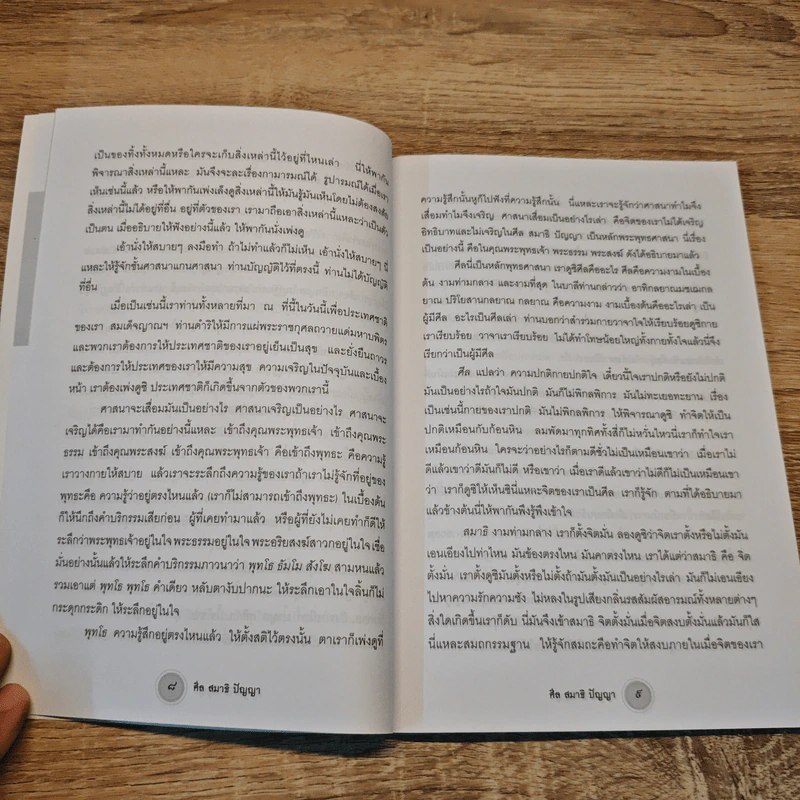 เป็นของทิ้งทั้งหมดหรือใครจะเก็บสิ่งเหล่านี้ไว้อยู่ที่ไหนเล่า นี่ให้พากัน
พิจารณาสิ่งเหล่านี้แหละ มันจึงจะละเรื่องกามารมณ์ได้ รูปารมณ์ได้เมื่อเรา
เห็นเช่นนี้แล้ว หรือให้พากันเพ่งเล็งดูสิ่งเหล่านี้ให้มันรู้มันเห็นโดยไม่ต้องสงสัย
สิ่งเหล่านี้ไม่ได้อยู่ที่อื่น อยู่ที่ตัวของเรา เรามาถือเอาสิ่งเหล่านี้แหละว่าเป็นตัว
เป็นตน เมื่ออธิบายให้ฟังอยู่นี้แล้ว ให้พากันนั่งเพ่งดู
เอ้านั่งให้สบายๆ ลงมือทำ ถ้าไม่ทำแล้วก็ไม่เห็น เอ้านั่งให้สบายๆ นี่
แหละให้รู้จักชั้นศาสนาแกนศาสนา ท่านบัญญัติไว้ที่ตรงนี้ ท่านไม่ได้บัญญัติ
ที่อื่น
เมื่อเป็นเช่นนี้เราท่านทั้งหลายที่มา ณ ที่นี้ในวันนี้เพื่อประเทศชาติ
ของเรา สมเด็จญาณฯ ท่านดำริให้มีการแผ่พระราชกุศลถวายแด่มหาบพิตร
และพวกเราต้องการให้ประเทศชาติของเราอยู่เย็นเป็นสุข และยั่งยืนถาวร
และต้องการให้ประเทศของเราให้มีความสุข ความเจริญในปัจจุบันและเบื้อง
หน้า เราต้องเพ่งดูซิ ประเทศชาติก็เกิดขึ้นจากตัวของพวกเรานี้
ศาสนาจะเสื่อมมันเป็นอย่างไร ศาสนาเจริญเป็นอย่างไร ศาสนาจะ
เจริญได้คือเรามาทำกันอย่างนี้แหละ เข้าถึงคุณพระพุทธเจ้า เข้าถึงคุณพระ
ธรรม เข้าถึงคุณพระสงฆ์ เข้าถึงคุณพระพุทธเจ้า คือเข้าถึงพุทธะ คือความรู้
เราวางกายให้สบาย แล้วเราจะระลึกถึงความรู้ของเราถ้าเราไม่รู้จักที่อยู่ของ
พุทธะคือ ความรู้ว่าอยู่ตรงไหนแล้ว (เราก็ไม่สามารถเข้าถึงพุทธะ) ในเบื้องต้น
ก็ให้นึกถึงคำบริกรรมเสียก่อน ผู้ที่เคยทำมาแล้ว หรือผู้ที่ยังไม่เคยทำก็ดีให้
ระลึกว่าพระพุทธเจ้าอยู่ในใจ พระธรรมอยู่ในใจ พระอริยสงฆ์สาวกอยู่ในใจ เชื่อ
มั่นอย่างนั้นแล้วให้ระลึกคำบริกรรมภาวนาว่า พุทโธ ธัมโม สังโฆ สามหนแล้ว
รวมเอาแต่ พุทโธ พุทโธ คำเดียว หลับตางับปากนะ ให้ระลึกเอาในใจลิ้นก็ไม่
กระดุกกระดิก ให้ระลึกอยู่ในใจ
พุทโธ ความรู้สึกอยู่ตรงไหนแล้ว ให้ตั้งสติไว้ตรงนั้น ตาเราก็เพ่งดูที่
๘ ศีล สมาธิ ปัญญา
ความรู้สึกนั้นหูก็ไปฟังที่ความรู้สึกนั้น นี่แหละเราจะรู้จักว่าศาสนาทำไมจึง
เสื่อมทำไมจึงเจริญ ศาสนาเสื่อมเป็นอย่างไรเล่า คือจิตของเราไม่ได้เจริญ
อิทธิบาทและไม่เจริญในศีล สมาธิ ปัญญา เป็นหลักพระพุทธศาสนา นี่เรื่อง
เป็นอย่างนี้ คือในคุณพระพุทธเจ้า พระธรรม พระสงฆ์ ดังได้อธิบายมาแล้ว
ศีลนี่เป็นหลักพุทธศาสนา เราดูซิศีลคืออะไร ศีลคือความงามในเบื้อง
ต้น งามท่ามกลาง และงามที่สุด ในบาลีท่านกล่าวว่า อาทิกลยาณมชเฌกล
ยาณ ปริโยสานกลยาณ กลยาณ คือความงาม งามเบื้องต้นคืออะไรเล่า เป็น
ผู้มีศีล อะไรเป็นศีลเล่า ท่านบอกว่าสำรวมกายวาจาใจให้เรียบร้อยดูซิกาย
เราเรียบร้อย วาจาเราเรียบร้อย ไม่ได้ทำโทษน้อยใหญ่ทั้งกายทั้งใจแล้วนี้จึง
เรียกว่าเป็นผู้มีศีล
ศีล แปลว่า ความปกติกายปกติใจ เดี๋ยวนี้ใจเราปกติหรือยังไม่ปกติ
มันเป็นอย่างไรถ้าใจมันปกติ มันก็ไม่พิกลพิการ มันไม่ทะเยอทะยาน เรื่อง
เป็นเช่นนี้กายของเราปกติ มันไม่พิกลพิการ ให้พิจารณาดูซิ ทำจิตให้เป็น
ปกติเหมือนกับก้อนหิน ลมพัดมาทุกทิศทั้งสี่ก็ไม่หวั่นไหวนี้เราก็ทำใจเรา
เหมือนก้อนหิน ใครจะว่าอย่างไรก็ตามดีชั่วไม่เป็นเหมือนเขาว่า เมื่อเราไม่
ดีแล้วเขาว่าดีมันก็ไม่ดี หรือเขาว่า เมื่อเราดีแล้วเขาว่าไม่ดีก็ไม่เป็นเหมือนเขา
ว่า เราก็ดูซิให้เห็นซินี่แหละจิตของเราเป็นศีล เราก็รู้จัก ตามที่ได้อธิบายมา
แล้วข้างต้นนี้ให้พากันพึงรู้พึงเข้าใจ
สมาธิ งามท่ามกลาง เราก็ตั้งจิตมั่น ลองดูซิว่าจิตเราตั้งหรือไม่ตั้งมั่น
เอนเอียงไปท่าไหน มันข้องตรงไหน มันคาตรงไหน เราได้แต่ว่าสมาธิ คือ จิต
ตั้งมั่น เราตั้งดูซิมันตั้งหรือไม่ตั้งถ้ามันตั้งมั่นเป็นอย่างไรเล่า มันก็ไม่เอนเอียง
ไปหาความรักความชัง ไม่หลงในรูปเสียงกลิ่นรสสัมผัสอารมณ์ทั้งหลายต่างๆ
สิ่งใดเกิดขึ้นเราก็ดับ นี่มันจึงเข้าสมาธิ จิตตั้งมั่นเมื่อจิตสงบตั้งมั่นแล้วมันก็ใส
นี่แหละสมถกรรมฐาน ให้รู้จักสมะคือทำจิตให้สงบภายในเมื่อจิตของเรา
ศีล สมาธิ ปัญญา ๙